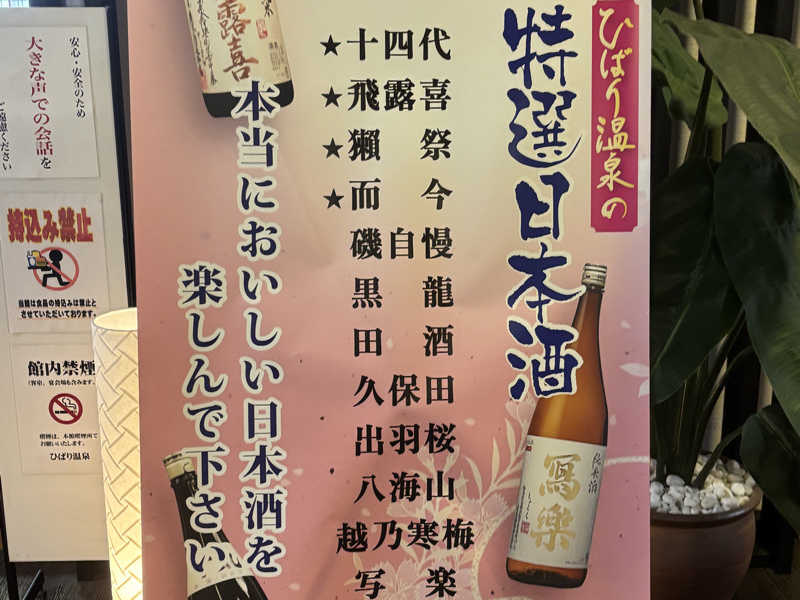 ひばり温泉の
特選日本酒
★十四代
★飛露喜
★獺祭
★而今
磯自慢
黒龍
田酒
久保田
出羽桜
八海山
越乃寒梅
写楽
本当においしい日本酒を
楽しんで下さい
露喜
純米酒
寫樂
安心・安全のため
大きな声での会話を
ご遠慮ください
持込み禁止
当館は食品の持込みは禁止と
させていただいております。
館内禁煙
(客室、宴会場も含みます。)
喫煙は、本館喫煙所で
お願いいたします。
ひばり温泉